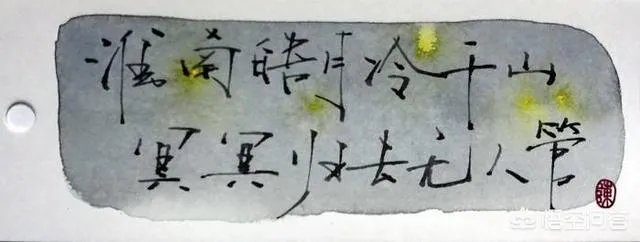 淮南皓月冷千山
冥冥归去无人管
悟空问答